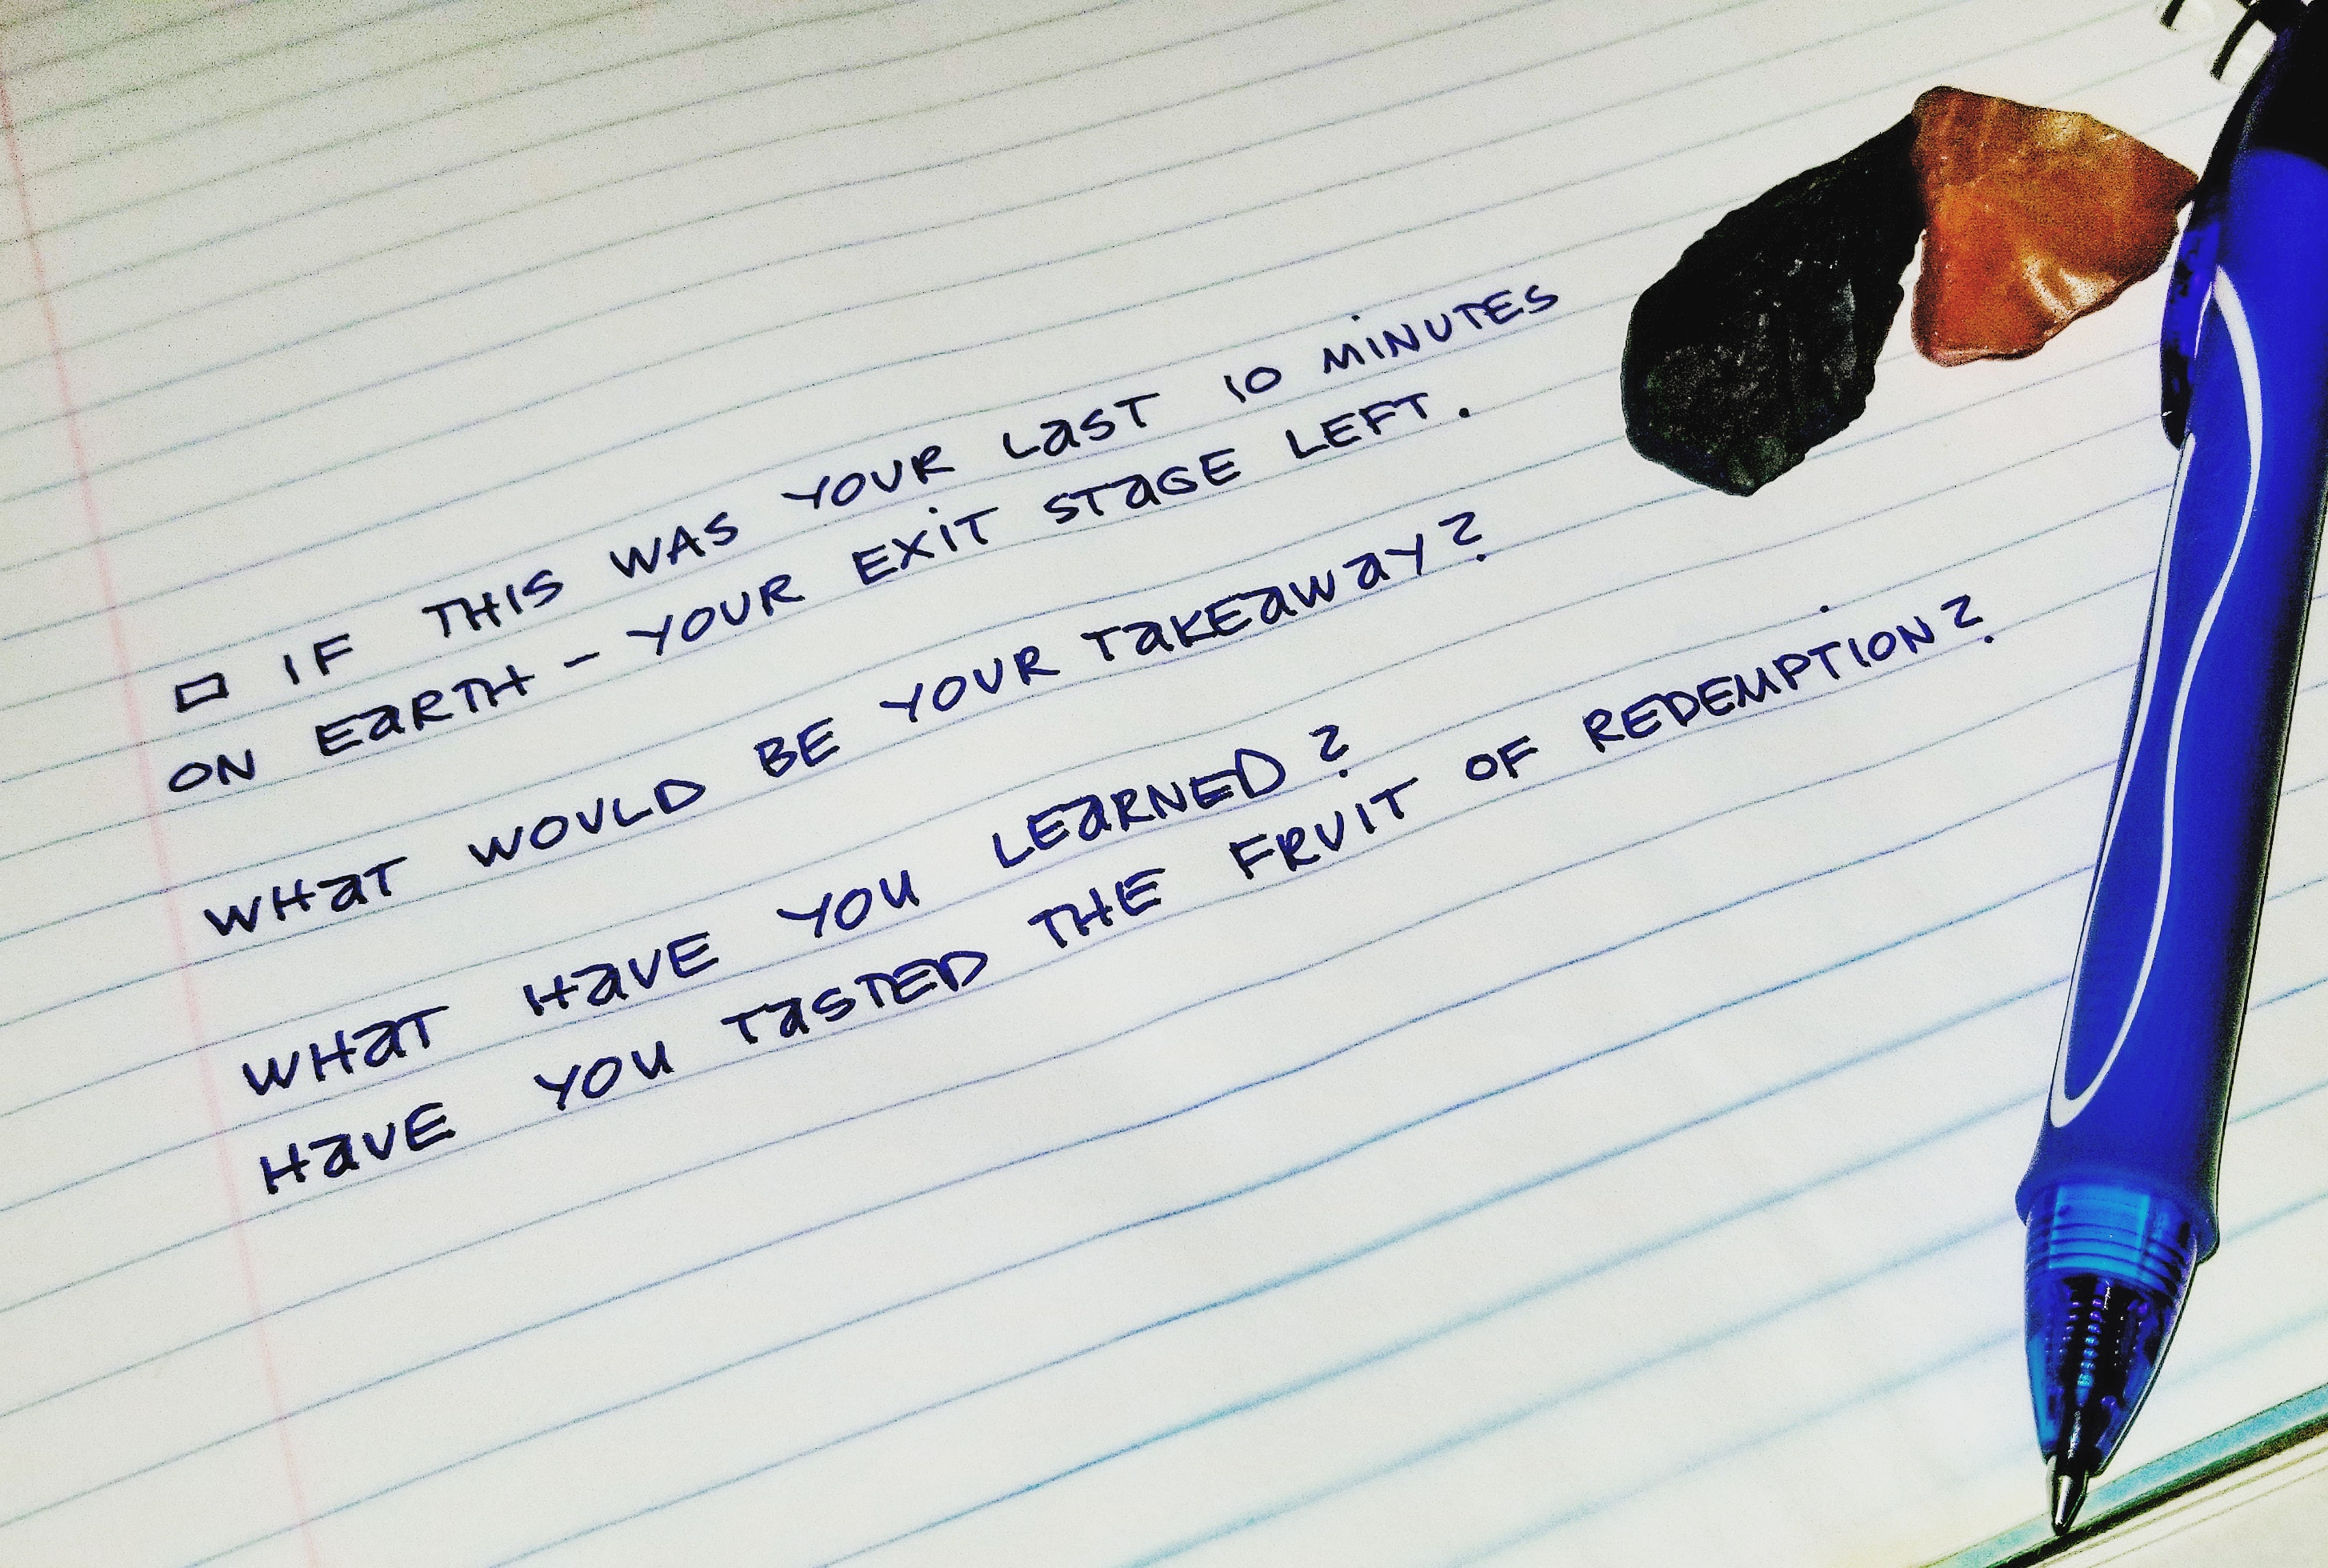 ▭ IF THIS WAS YOUR LAST 10 MINUTES
ON EARTH - YOUR EXIT STAGE LEFT.
WHAT WOULD BE YOUR TAKEAWAY?
WHAT HAVE YOU LEARNED?
HAVE YOU TASTED THE FRUIT OF REDEMPTION?